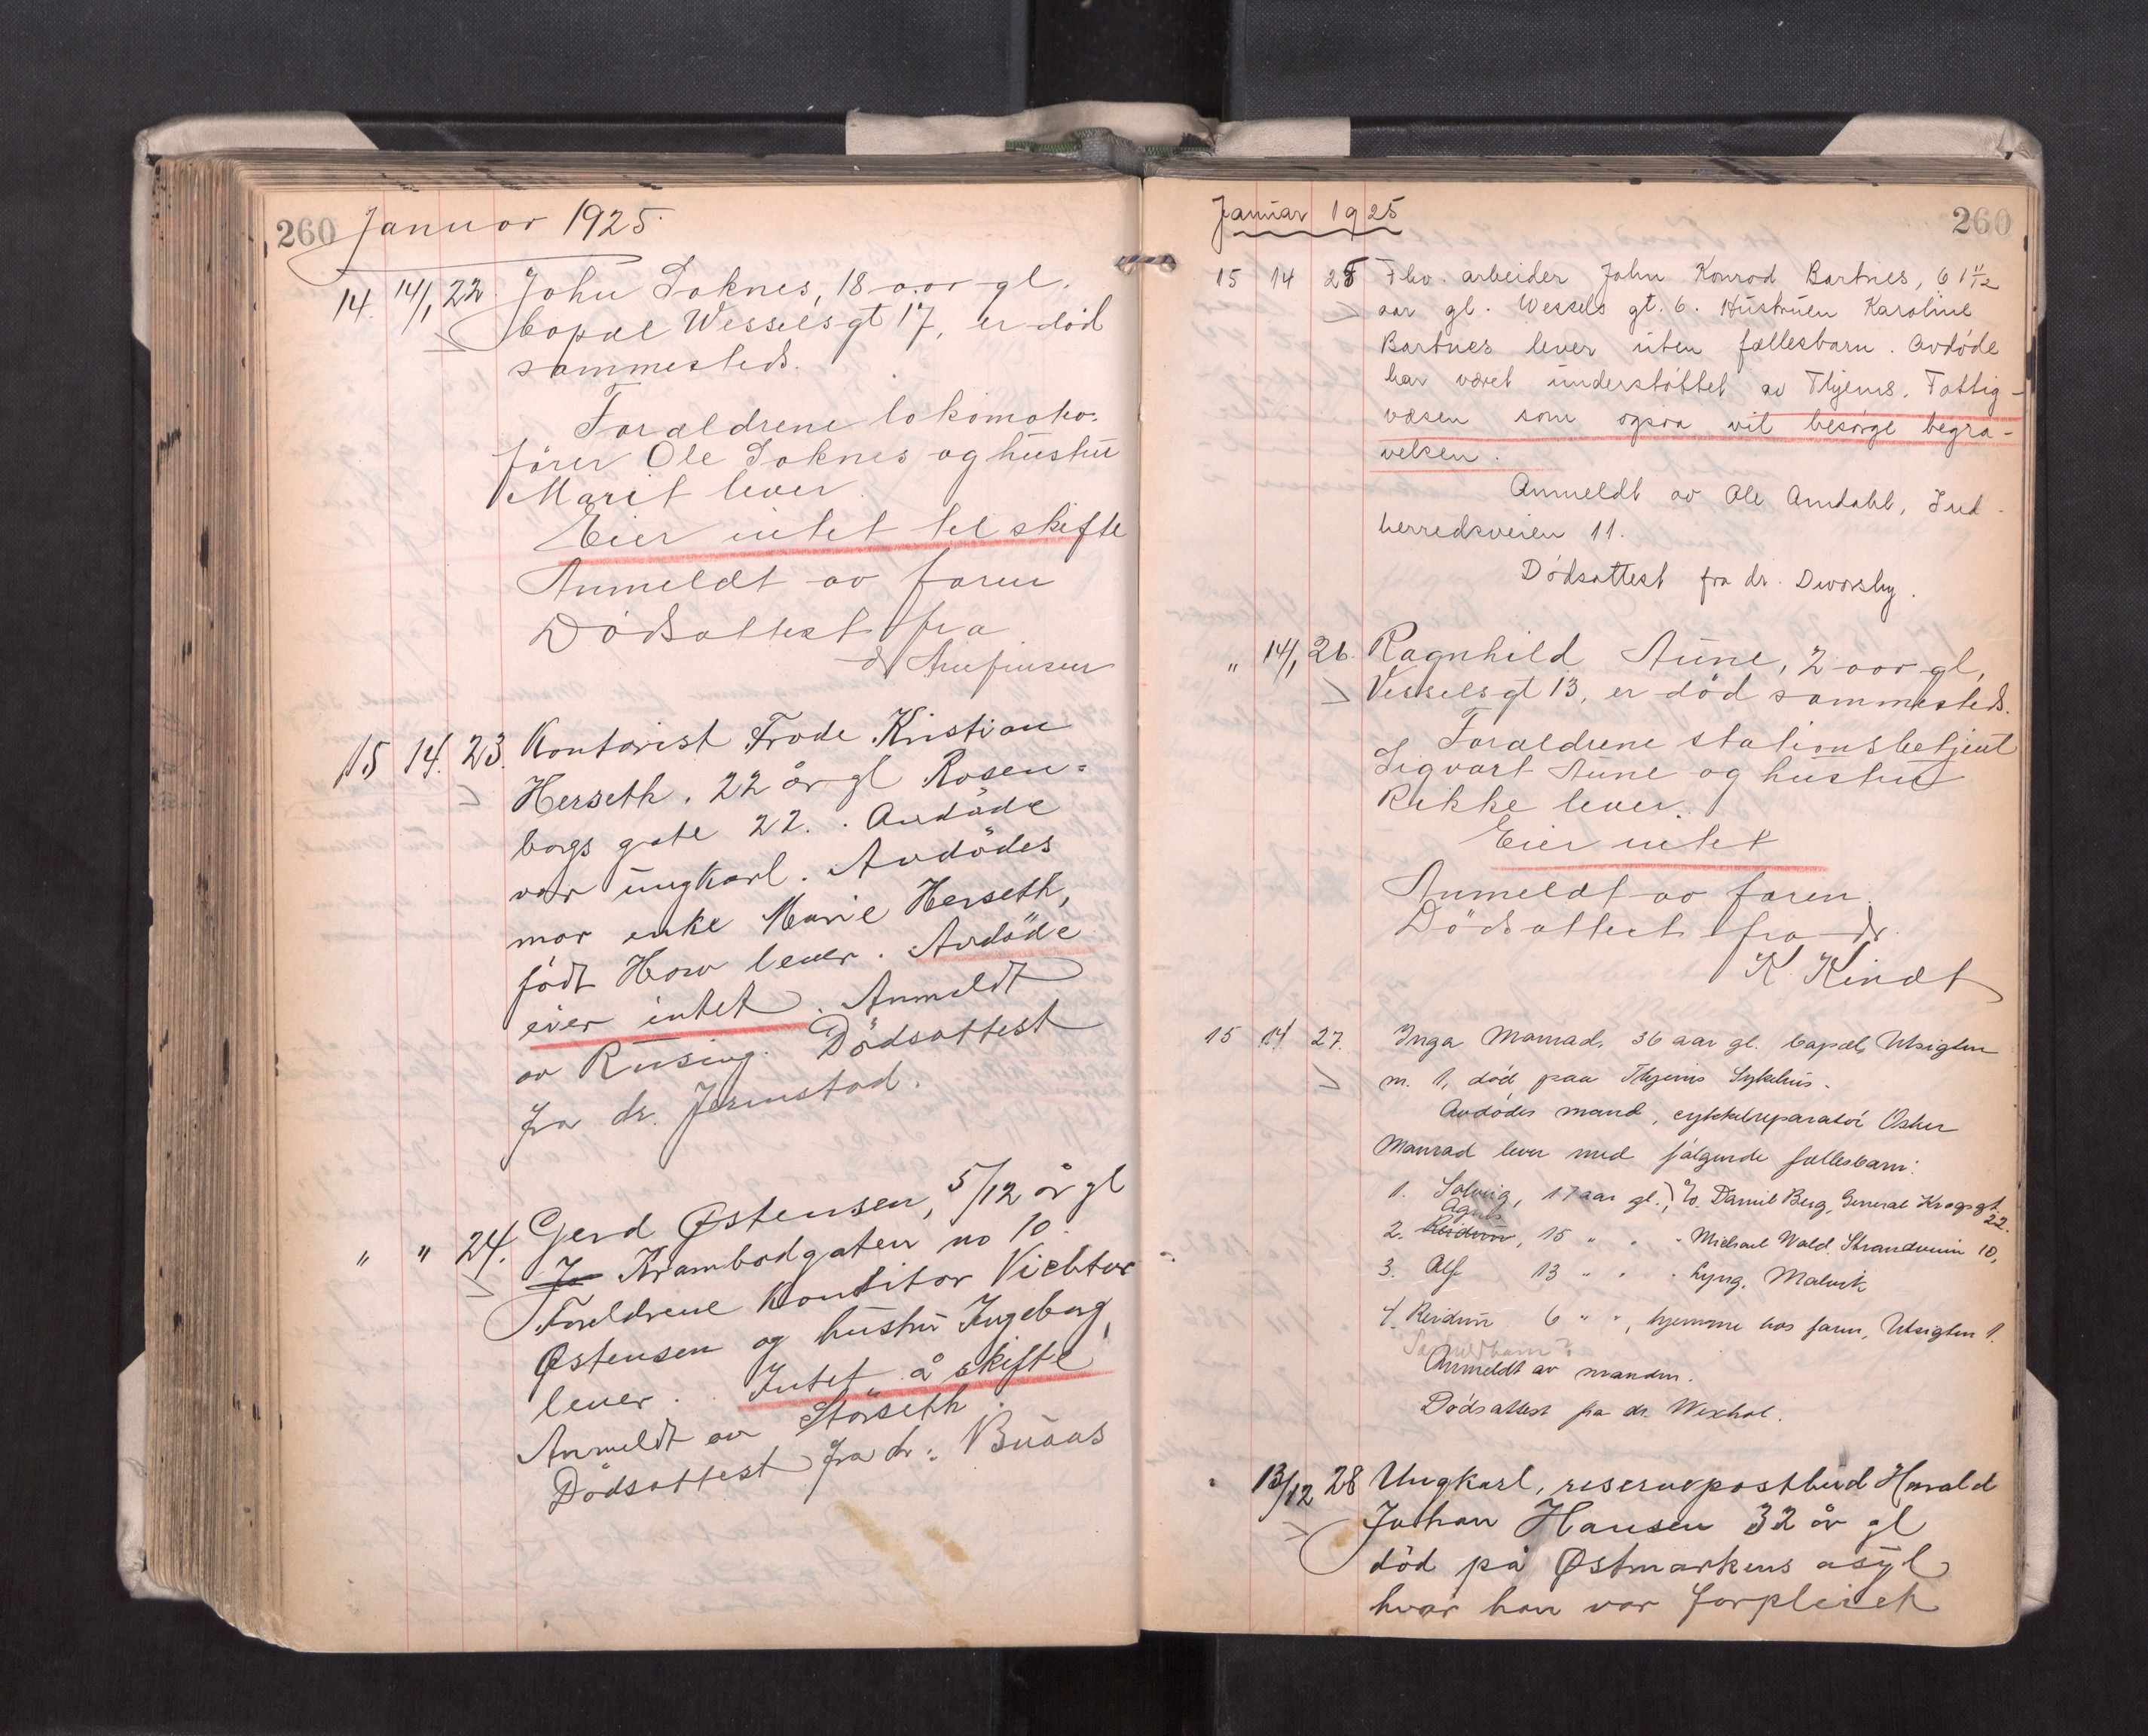 260 Januar 1925.
14. 14/1 22. John Soknes, 18 aar gl.
bopæl Wesselsgt 17, er död
sammesteds.
Forældrene lokomotiv-
förer Ole Soknes og hustru
Marit lever.
Eier intet til skifte
Anmeldt av faren
Dödsattest fra
dr
15 14. 23. Kontorist Frode Kristian
Herseth. 22 år gl Rosen-
borgs gate 22. Avdöde
var ungkarl. Avdödes
mor enke Marie Herseth,
födt How lever. Avdöde
eier intet. Anmeldt
av Rusing. Dödsattest
fra dr. Jermstad.
" " 24. Gerd Østensen, 5/12 år gl
Krambodgaten no 10.
Foreldrene konditor Vichtor
Østensen og hustru Ingeborg,
lever. Intet å skifte
Anmeldt av Störseth.
Dödsattest fra dr. Buaas
Januar 1925
260
15 14 25 Fhv. arbeider John Konrad Bartnes, 61 1/2
aar gl. Wessels gt. 6. Hustruen Karoline
Bartnes lever uten fællesbarn. Avdöde
har været understöttet av Thjems. Fattig-
væsen som ogsaa vil besörge begra-
velsen.
Anmeldt av Ole Amdahl, Ind-
herredsveien 11.
Dödsattest fra dr. Dworsky.
" 14/1 26. Ragnhild Aune, 2 aar gl,
Wesselsgt 13, er död sammesteds.
Forældrene stationsbetjent
Sigvart Aune og hustru
Rikke lever.
Eier intet
Anmeldt av faren.
Dödsattest fra dr.
K. Kindt
15 14 27. Inga Manrad, 36 aar gl. bopæl, Utsigten
nr. 1, död paa Thjems Sykehus.
Avdödes mand, cykkelreparatör Oskar
Manrad lever med fölgende fællesbarn:
1. Solveig, 17 aar gl., c/o. Daniel Berg, General Krogsgt.
22.
Agnes
2. Reidun, 15 " " " Michael Wold, Strandveien 10,
3. Alf 13 " " " Lyng, Malvik
4. Reidun 6 " ", hjemme hos faren, Utsigten 1.
Anmeldt av manden.
Dödsattest fra dr. Wexhal.
" 13/12 28 Ungkarl, reservepostbud Harald
Johan Hansen 32 år gl
död på Østmarkens asyl
hvor han var forpleiet